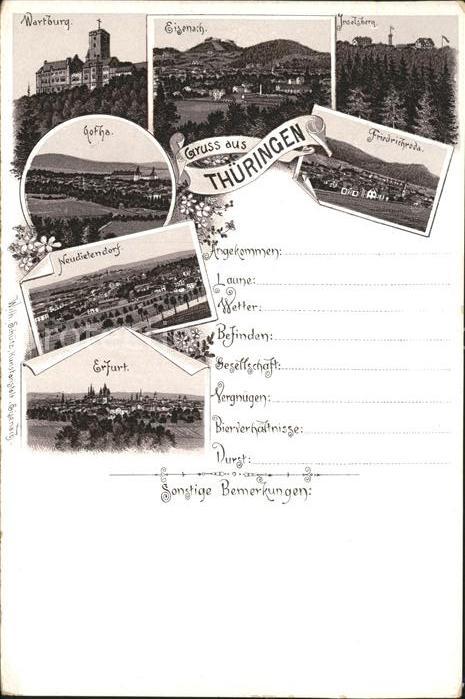 Wartburg.
Eisenach.
Inselsberg.
Gotha.
Gruss aus
THÜRINGEN
Friedrichroda.
Neudietendorf.
Erfurt.
Angekommen:
Laune:
Wetter:
Befinden:
Gesellschaft:
Vergnügen:
Bierverhältnisse:
Durst:
Sonstige Bemerkungen: